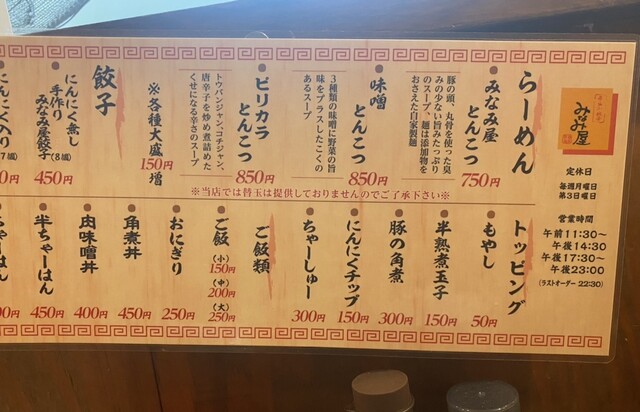 らーめん
みなみ屋とんこつ
750円
豚の頭、丸骨を使った臭
みの少ない旨みたっぷり
のスープ、麺は添加物を
おさえた自家製麺
味噌とんこつ
850円
3種類の味噌に野菜の旨
味をプラスしたこくの
あるスープ
ピリカラとんこつ
850円
トウバンジャン、コチジャン、
唐辛子を炒め煮詰めた
くせになる辛さのスープ
※各種大盛
150円増
※当店では替玉は提供しておりませんのでご了承下さい※
餃子
にんにく無し
手作り
みなみ屋餃子(8個)
450円
にんにく入り
(7個)
50円
トッピング
もやし
50円
半熟煮玉子
150円
豚の角煮
300円
にんにくチップ
150円
ちゃーしゅー
300円
ご飯類
ご飯
(小)
150円
(中)
200円
(大)
250円
おにぎり
250円
角煮丼
450円
肉味噌丼
400円
半ちゃーはん
450円
ちゃーはん
みなみ屋
定休日
毎週月曜日
第3日曜日
営業時間
午前11:30~
午後14:30
午後17:30~
午後23:00
(ラストオーダー 22:30)